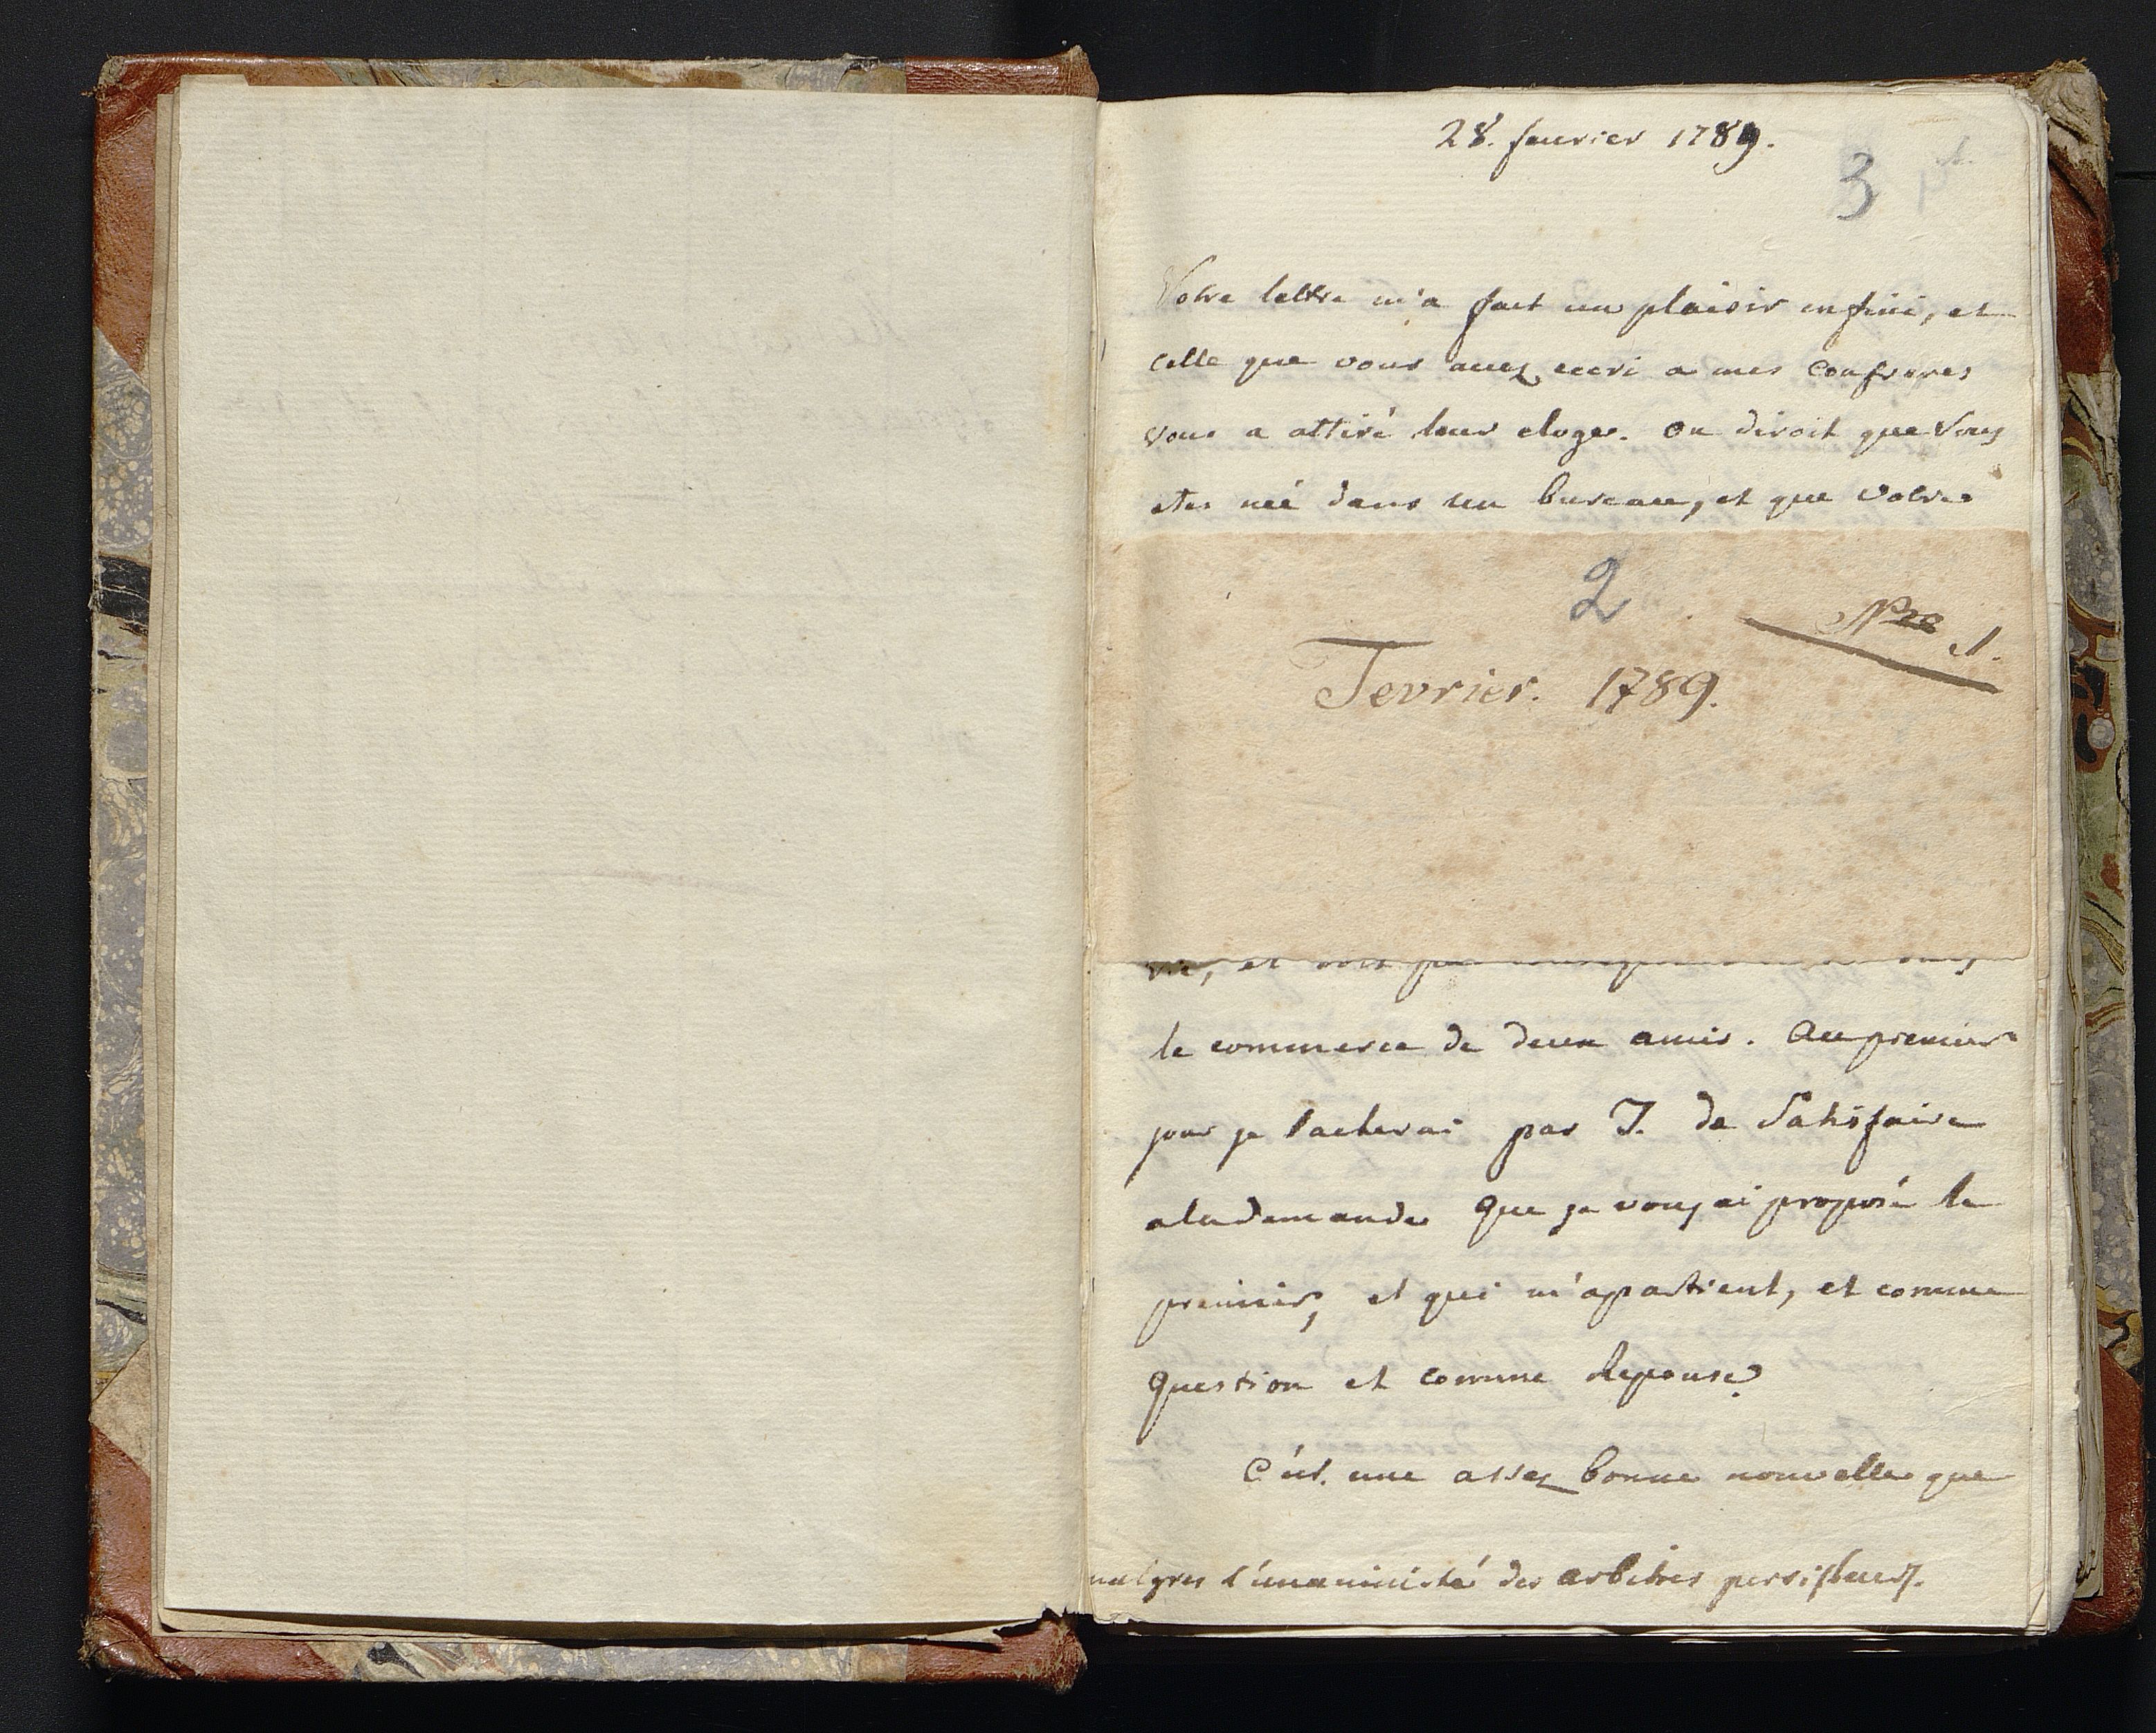 28. feurier 1789.
3
Votre lettre m'a fait un plaisir infini, et
celle que vous auez ecri a mes confreres
vous a attiré leur eloge. on diroit que vous
etes né dans un bureau, et que votre
2
Nro 1.
Fevrier. 1789.
vie, et
le commerce de deux amis. Au premier
jour je tacherai par J. de satisfaire
a la demande que je vous ai proposé le
premier, et qui m'apartient, et comme
question et comme reponse.
C'est une assez bonne nouvelle que
malgres l'unanimité des arbitres persifleurs.